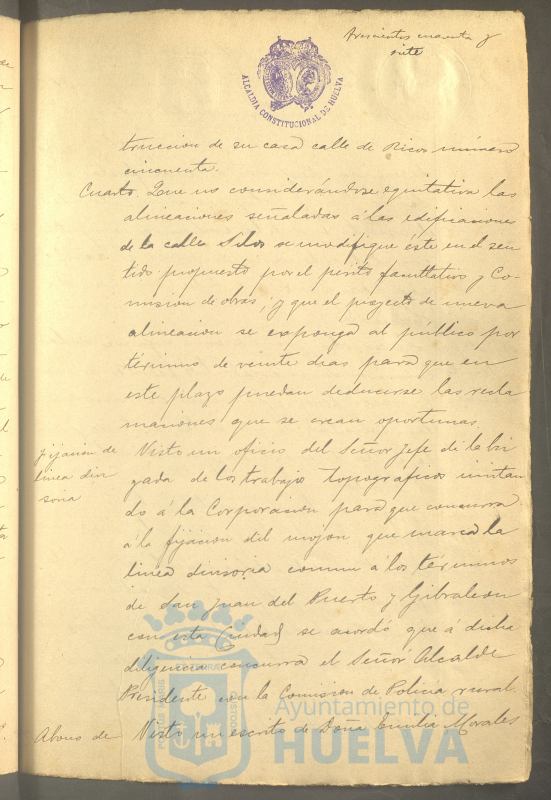 Trescientos cincuenta y
siete
ALCALDIA CONSTITUCIONAL DE HUELVA
truccion de su casa calle de Ricos número
cincuenta.
Cuarto. Que no considerándose equitativa las
alineaciones señaladas á las edificaciones
de la calle Silos se modifique éste en el sen
tido propuesto por el perito facultativo y Co-
mision de obras, y que el proyecto de nueva
alineacion se exponga al público por
término de veinte dias para que en
este plazo puedan deducirse las recla
maciones que se crean oportunas.
Fijacion de
linea divi
soria
Visto un oficio del Señor Jefe de la bri
gada de los trabajo topograficos invitan
do á la Corporacion para que concurra
á la fijacion del mojon que marca la
linea divisoria comun á los términos
de San Juan del Puerto y Gibraleon
con esta Ciudad se acordó que á dicha
diligencia concurra el Señor Alcalde
Presidente con la Comision de Policia rural.
Abono de
Visto un escrito de Doña Emilia Morales
Ayuntamiento de
HUELVA